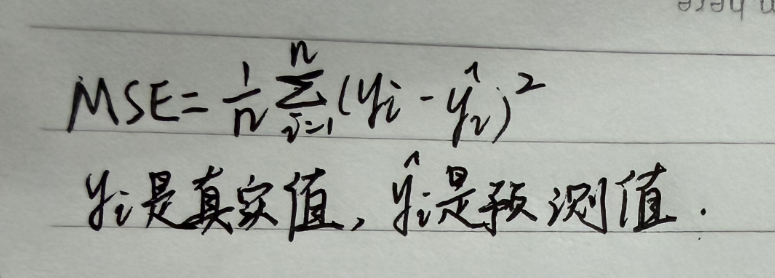 MSE = \frac{1}{n} \sum_{i=1}^{n} (y_i - \hat{y}_i)^2
y_i是真实值, \hat{y}_i是预测值.